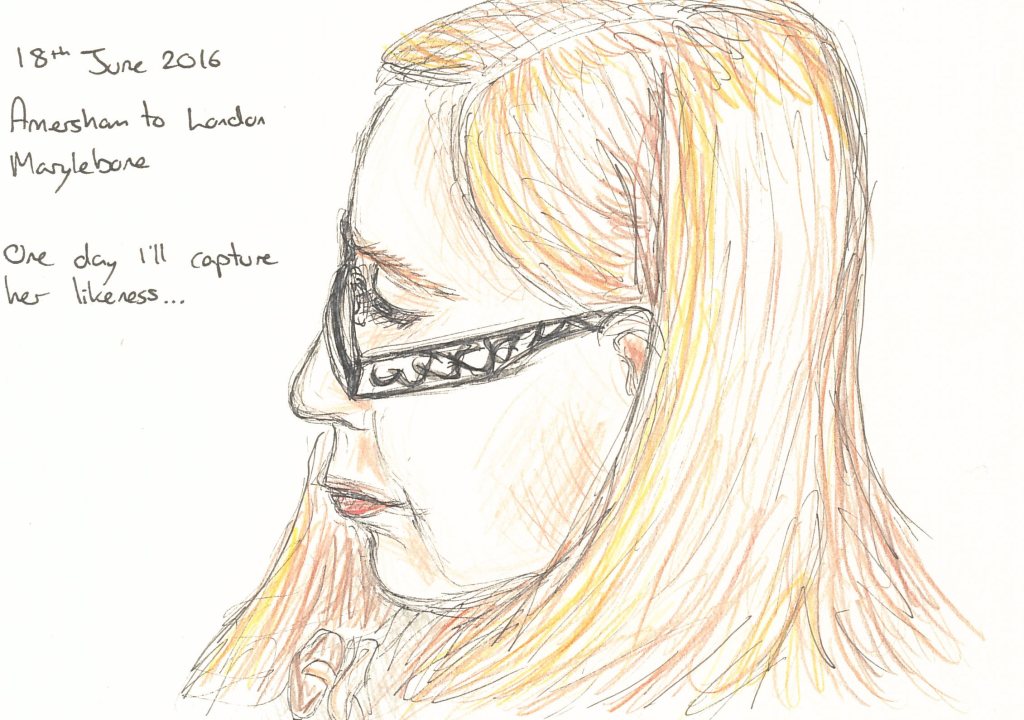 18th June 2016
Amersham to London
Marylebone
One day I'll capture
her likeness...